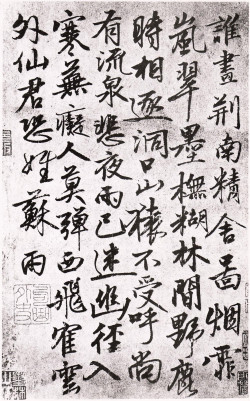 誰畫荆南精舍啚烟霏
嵐翠墨橅糊林間野鹿
時相逐洞口山猿不受呼尚
有流泉悲夜雨已迷徑入
寒蕪癡人莫彈西飛寉雲
外仙君恐姓蘇 雨